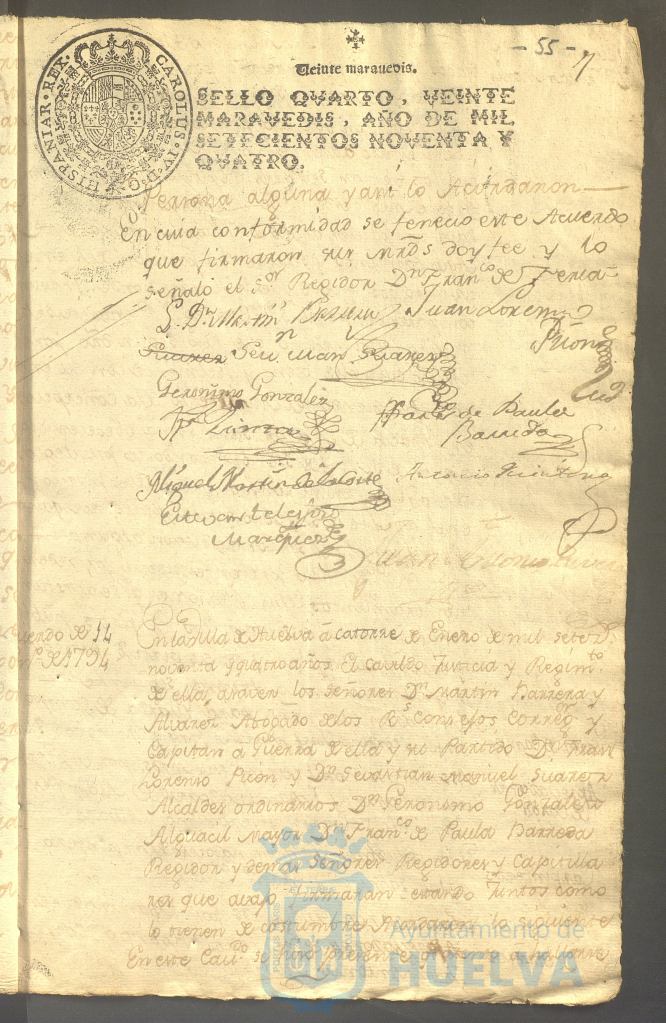 - 55 -
HISPANIAR. REX. CAROLUS. IV. D. G.
Veinte maravedis.
SELLO QVARTO, VEINTE
MARAVEDIS, AÑO DE MIL
SETECIENTOS NOVENTA Y
QVATRO.
Persona alguna y asi lo Acordaron
En cuia conformidad se fenecio este Acuerdo
que firmaron sus Mrds doy fee y lo
señaló el Sor Regidor Dn Franco de Feria
Juan Lorenzo
Picon
Suarez Sevn Man Suarez
Geronimo Gonzalez
Franco de Paula
Barreda
Miguel Martin de la Corte Antonio Quintero
Estevan telesforo
Marquez
Acuerdo de 14
de Enro de 1794
En la villa de Huelva á catorze de Enero de mil setezs
noventa y quatro años El cavildo Justicia y Regimto
de ella, asaver los Señores Dn Martin Barrera y
Alvarez Abogado de los Rs Consejos Corregor y
Capitan á Guerra de ella y su Partido Dn Juan
Lorenzo Picon y Dn Sevastian Manuel Suarez
Alcaldes ordinarios Dn Geronimo Gonzalez
Alguacil Mayor Dn Franco de Paula Barreda
Regidor y demas Señores Regidores y Capitula
res que avajo firmaran estando Juntos como
lo tienen de costumbre Acordaron lo siguiente
En este Cavdo se hizo presente á hallarse
Ayuntamiento de
HUELVA